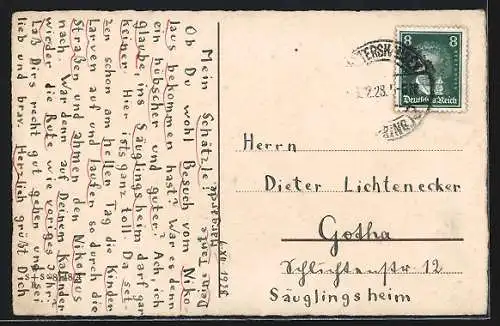 Mein Schätzle!
Ob Du wohl Besuch vom Niko-
laus bekommen hast? War es denn
ein hübscher und guter? Ach ich
glaube, ins Säuglingsheim darf gar
keiner. Hier ists ganz toll. Da set-
zen schon am hellen Tag die Kinder
Larven auf und laufen so durch die
Straßen und ahmen den Nikolaus
nach. War denn auf Deinem Kalender
wieder die Rute wie voriges Jahr?
Laß Dirs recht gut gehen und sei
lieb und brav. Herzlich grüßt Dich
Deine Tante
XII. 1928
8 8
Deutsches Reich
Herrn
Dieter Lichtenecker
Gotha
Schlichtenstr. 12
Säuglingsheim